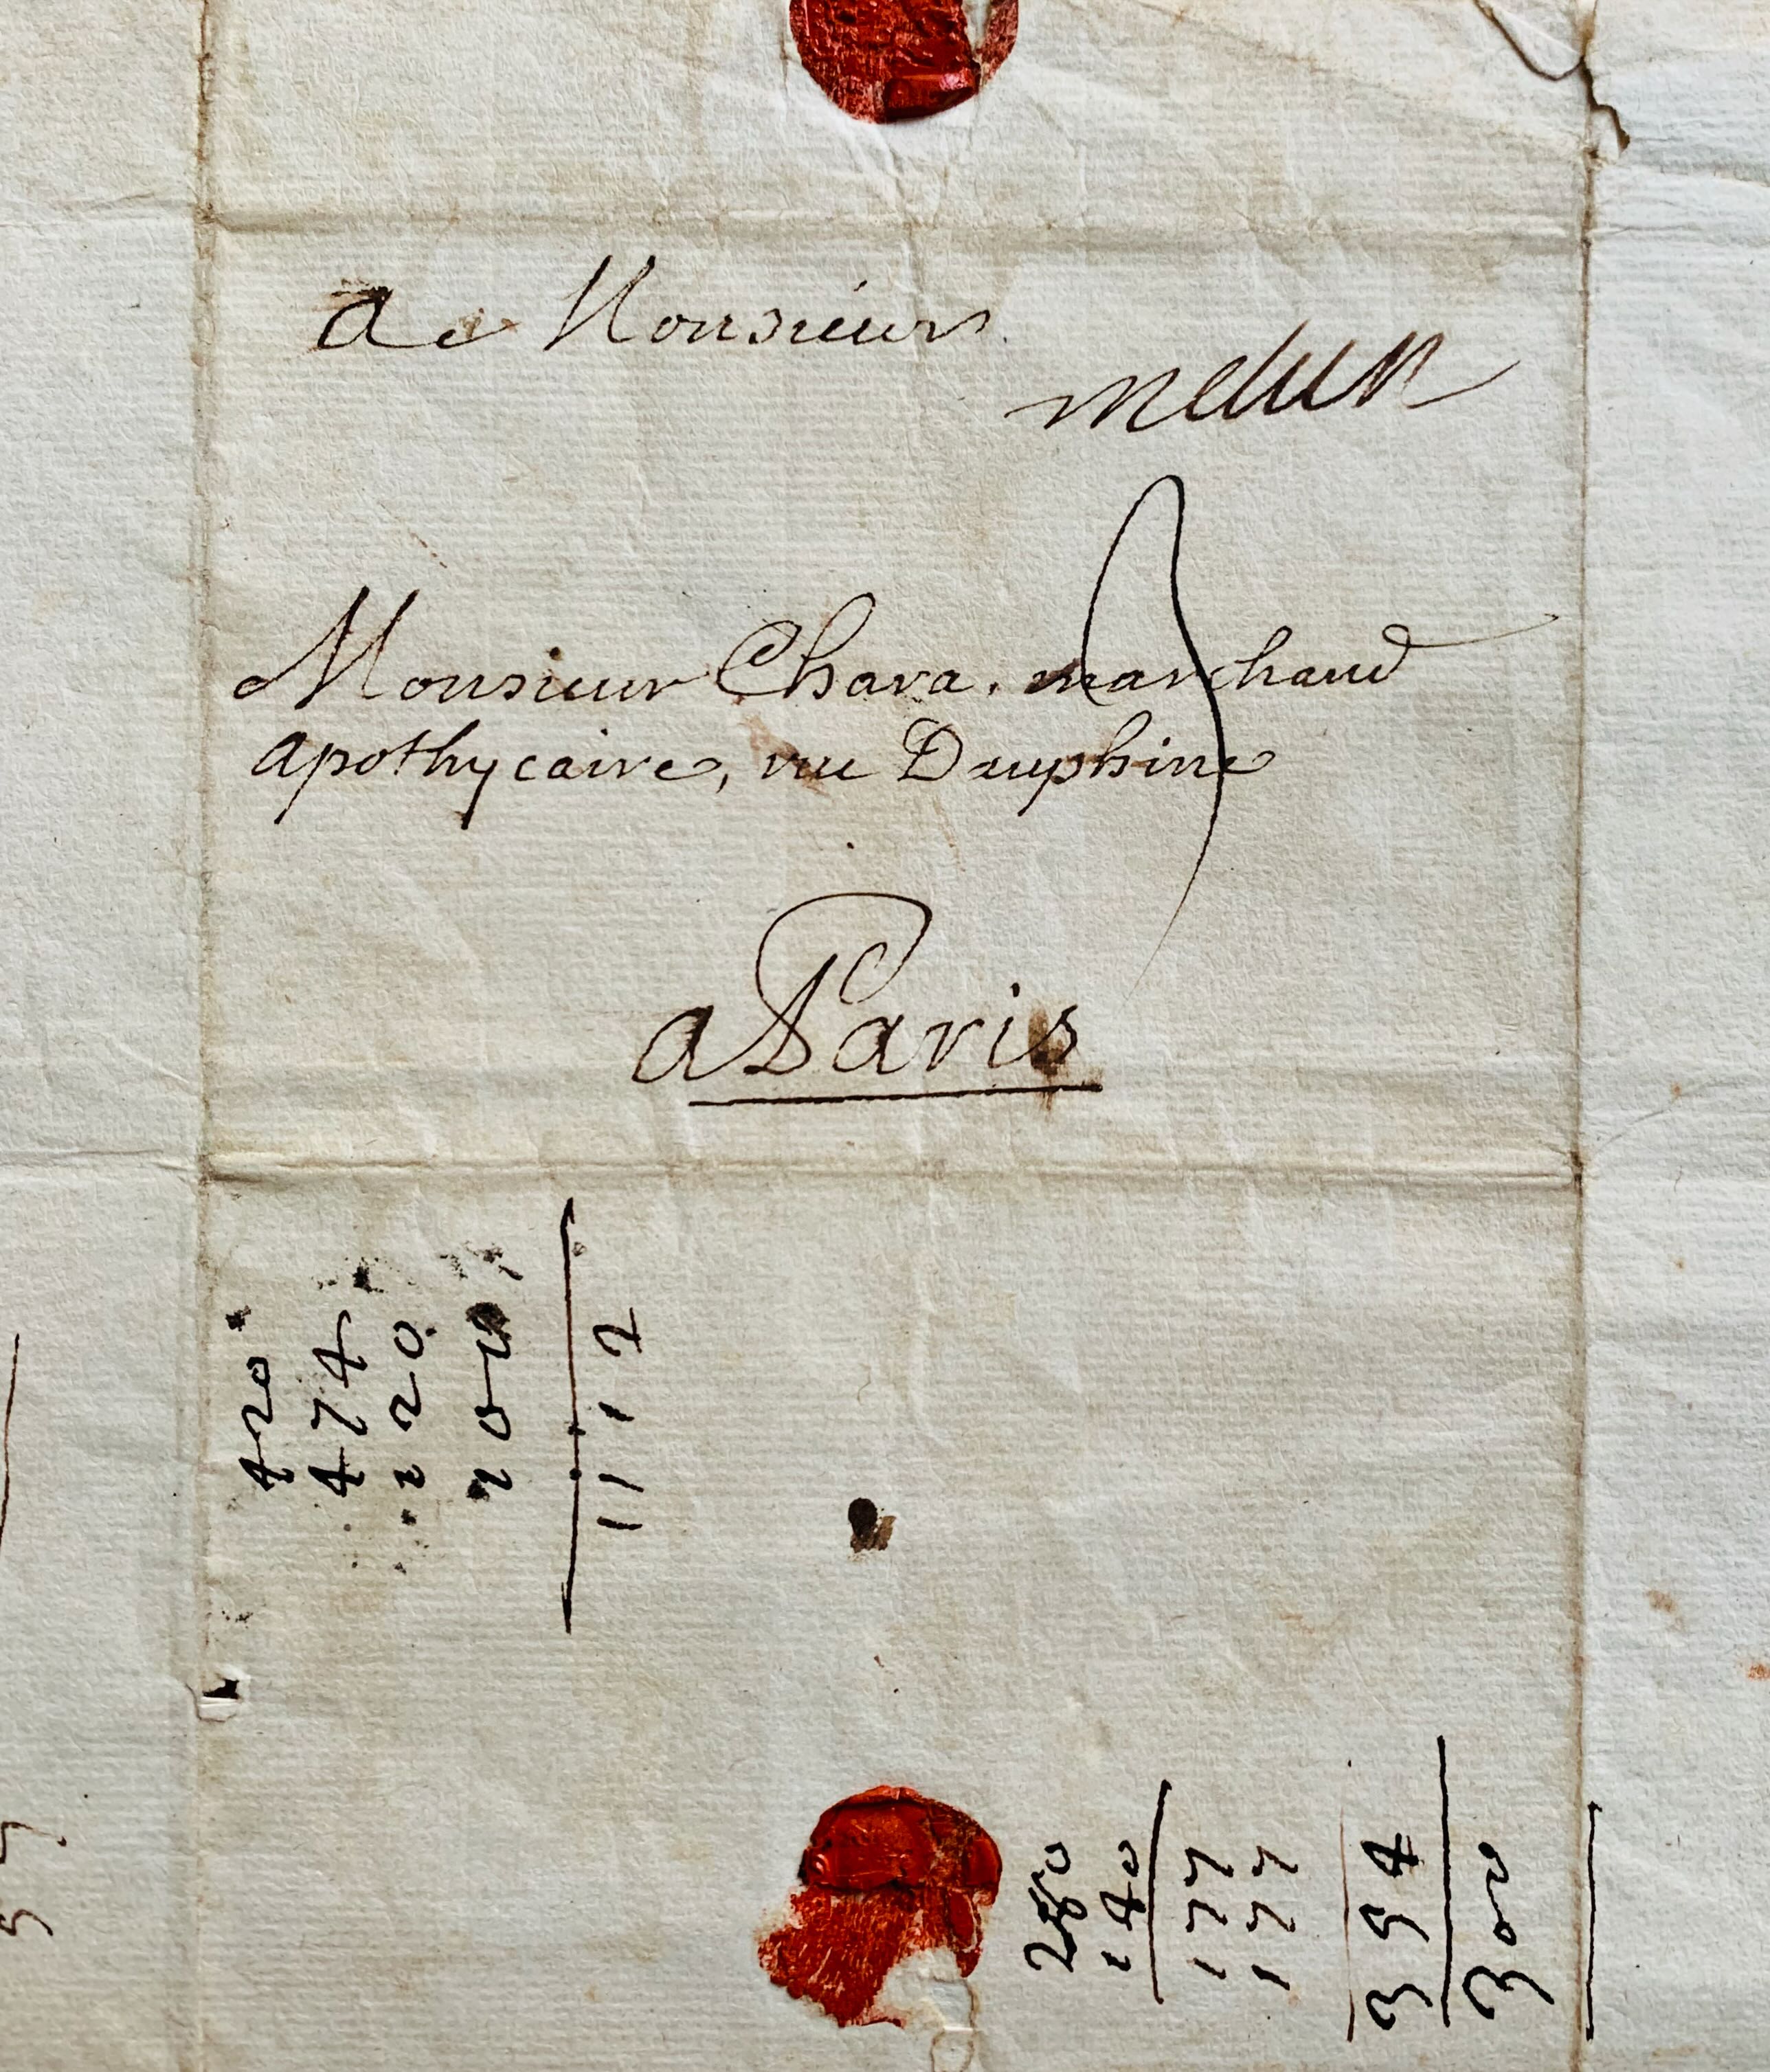 a Monsieur
melun
Monsieur Chara. marchand
apothycaire, rue Dauphine
a Paris
420
474
220
1112
140
177
177
354
300